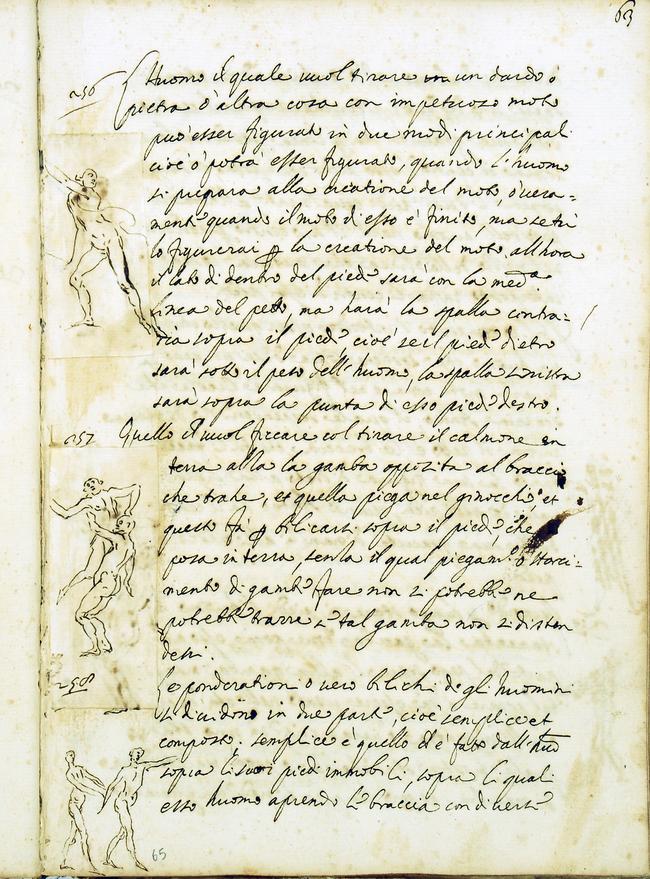 63
256
Huomo il quale vuol tirare un dardo o
pietra o altra cosa con impetuoso moto
può esser figurato in due modi principali
cioè o potrà esser figurato, quando l'huomo
si prepara alla creatione del moto, o vera=
mente quando il moto di esso è finito, ma se tu
lo figurerai p la creatione del moto, all'hora
il lato di dentro del piede sarà con la med.a
linea del petto, ma harà la spalla contra=
ria sopra il piede, cioè se il piede dietro
sarà sotto il peso dell'huomo, la spalla sinistra
sarà sopra la punta di esso piede destro.
257
Quello ch vuol ficcare col tirare il calmone in
terra alza la gamba opposita al braccio
che trahe, et quella piega nel ginocchio, et
questo fa p bilicarsi sopra il piede, che
posa in terra, senza il qual piegam.o o storci=
mento di gambe fare non si potrebbe ne
potrebbe trarre se tal gamba non si disten
dessi.
258
Le ponderationi o vero bilichi de gli huomini
si dividono in due parte, cioè semplice et
composto: semplice è quello ch è fato dall'huo
sopra li suoi piedi immobili, sopra li quali
esso huomo aprendo le braccia con diverse
65